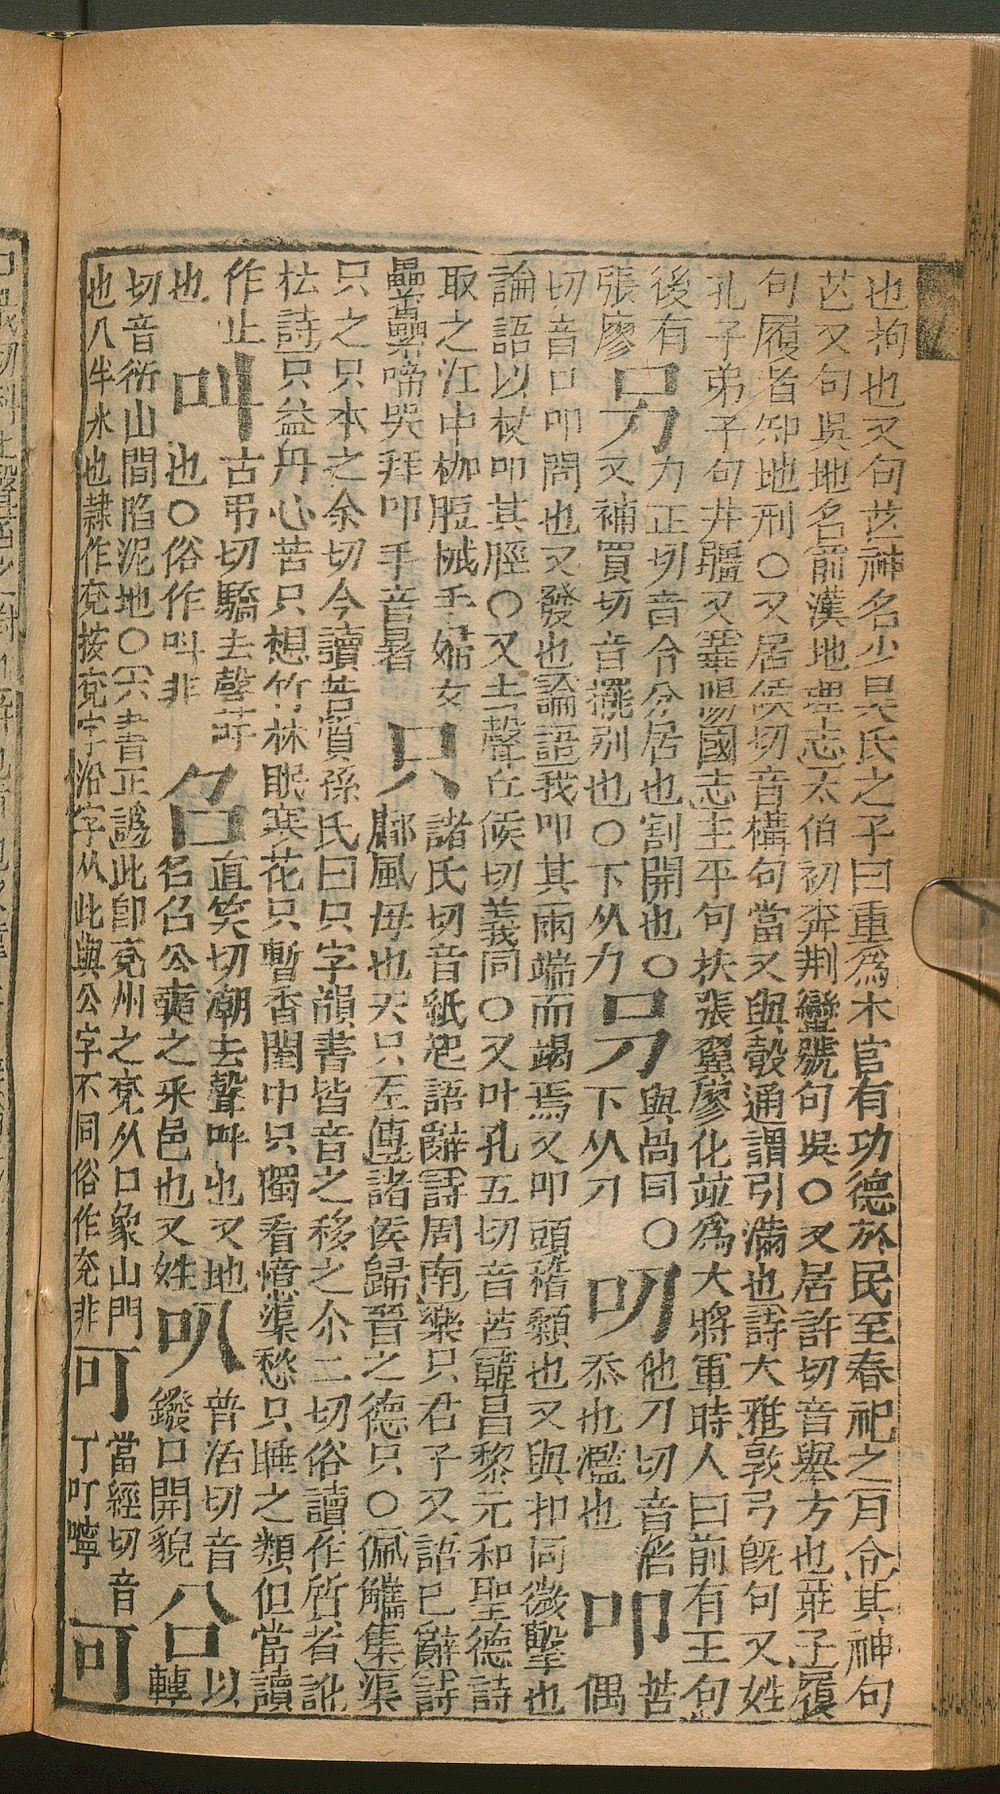 也拘也又句芒神名少昊氏之子曰重爲木官有功德於民至春祀之月令其神句
芒又句吳地名前漢地理志太伯初奔荆蠻號句吳○又居許切音舉方也莊子履
句屨者知地形○又居候切音構句當又與彀通謂引滿也詩大雅敦弓旣句又姓
孔子弟子句井疆又華陽國志王平句扶張翼廖化竝爲大將軍時人曰前有王句
後有張廖 另 力正切音令分居也割開也○又補買切音擺别也○下从力 叧 與咼同○下从刀 叨 他刀切音滔忝也濫也 叩 苦偶
切音口叩問也又發也論語我叩其兩端而竭焉又叩頭稽顙也又與扣同微擊也
論語以杖叩其脛○又去聲丘候切義同○又叶孔五切音苦韓昌黎元和聖德詩
取之江中枷脰械手婦女纍纍啼哭拜叩手音暑 只 諸氏切音紙起語辭詩周南樂只君子又語已辭詩鄘風母也天只左傳諸侯歸晉之德只○佩觿集渠
只之只本之余切今讀若質孫氏曰只字韻書皆音之移之尒二切俗讀作質者訛
杜詩只益丹心苦只想竹林眠寒花只暫香閨中只獨看憶渠愁只睡之類但當讀
作止也 叫 古弔切驕去聲呼也○俗作呌非 召 直笑切潮去聲呼也又地名召公奭之采邑也又姓 叭 普活切音鏺口開貌 㕣 以轉
切音衍山間陷泥地○六書正譌此卽兗州之兗从口象山門也八半水也隸作兗按兗字沿字从此與公字不同俗作兖非 叮 當經切音丁叮嚀 可